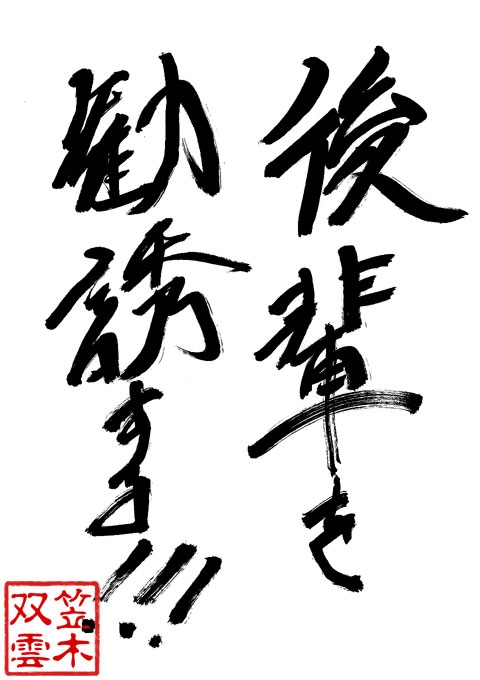 後輩を
勧誘する!!!
笠木
双雲